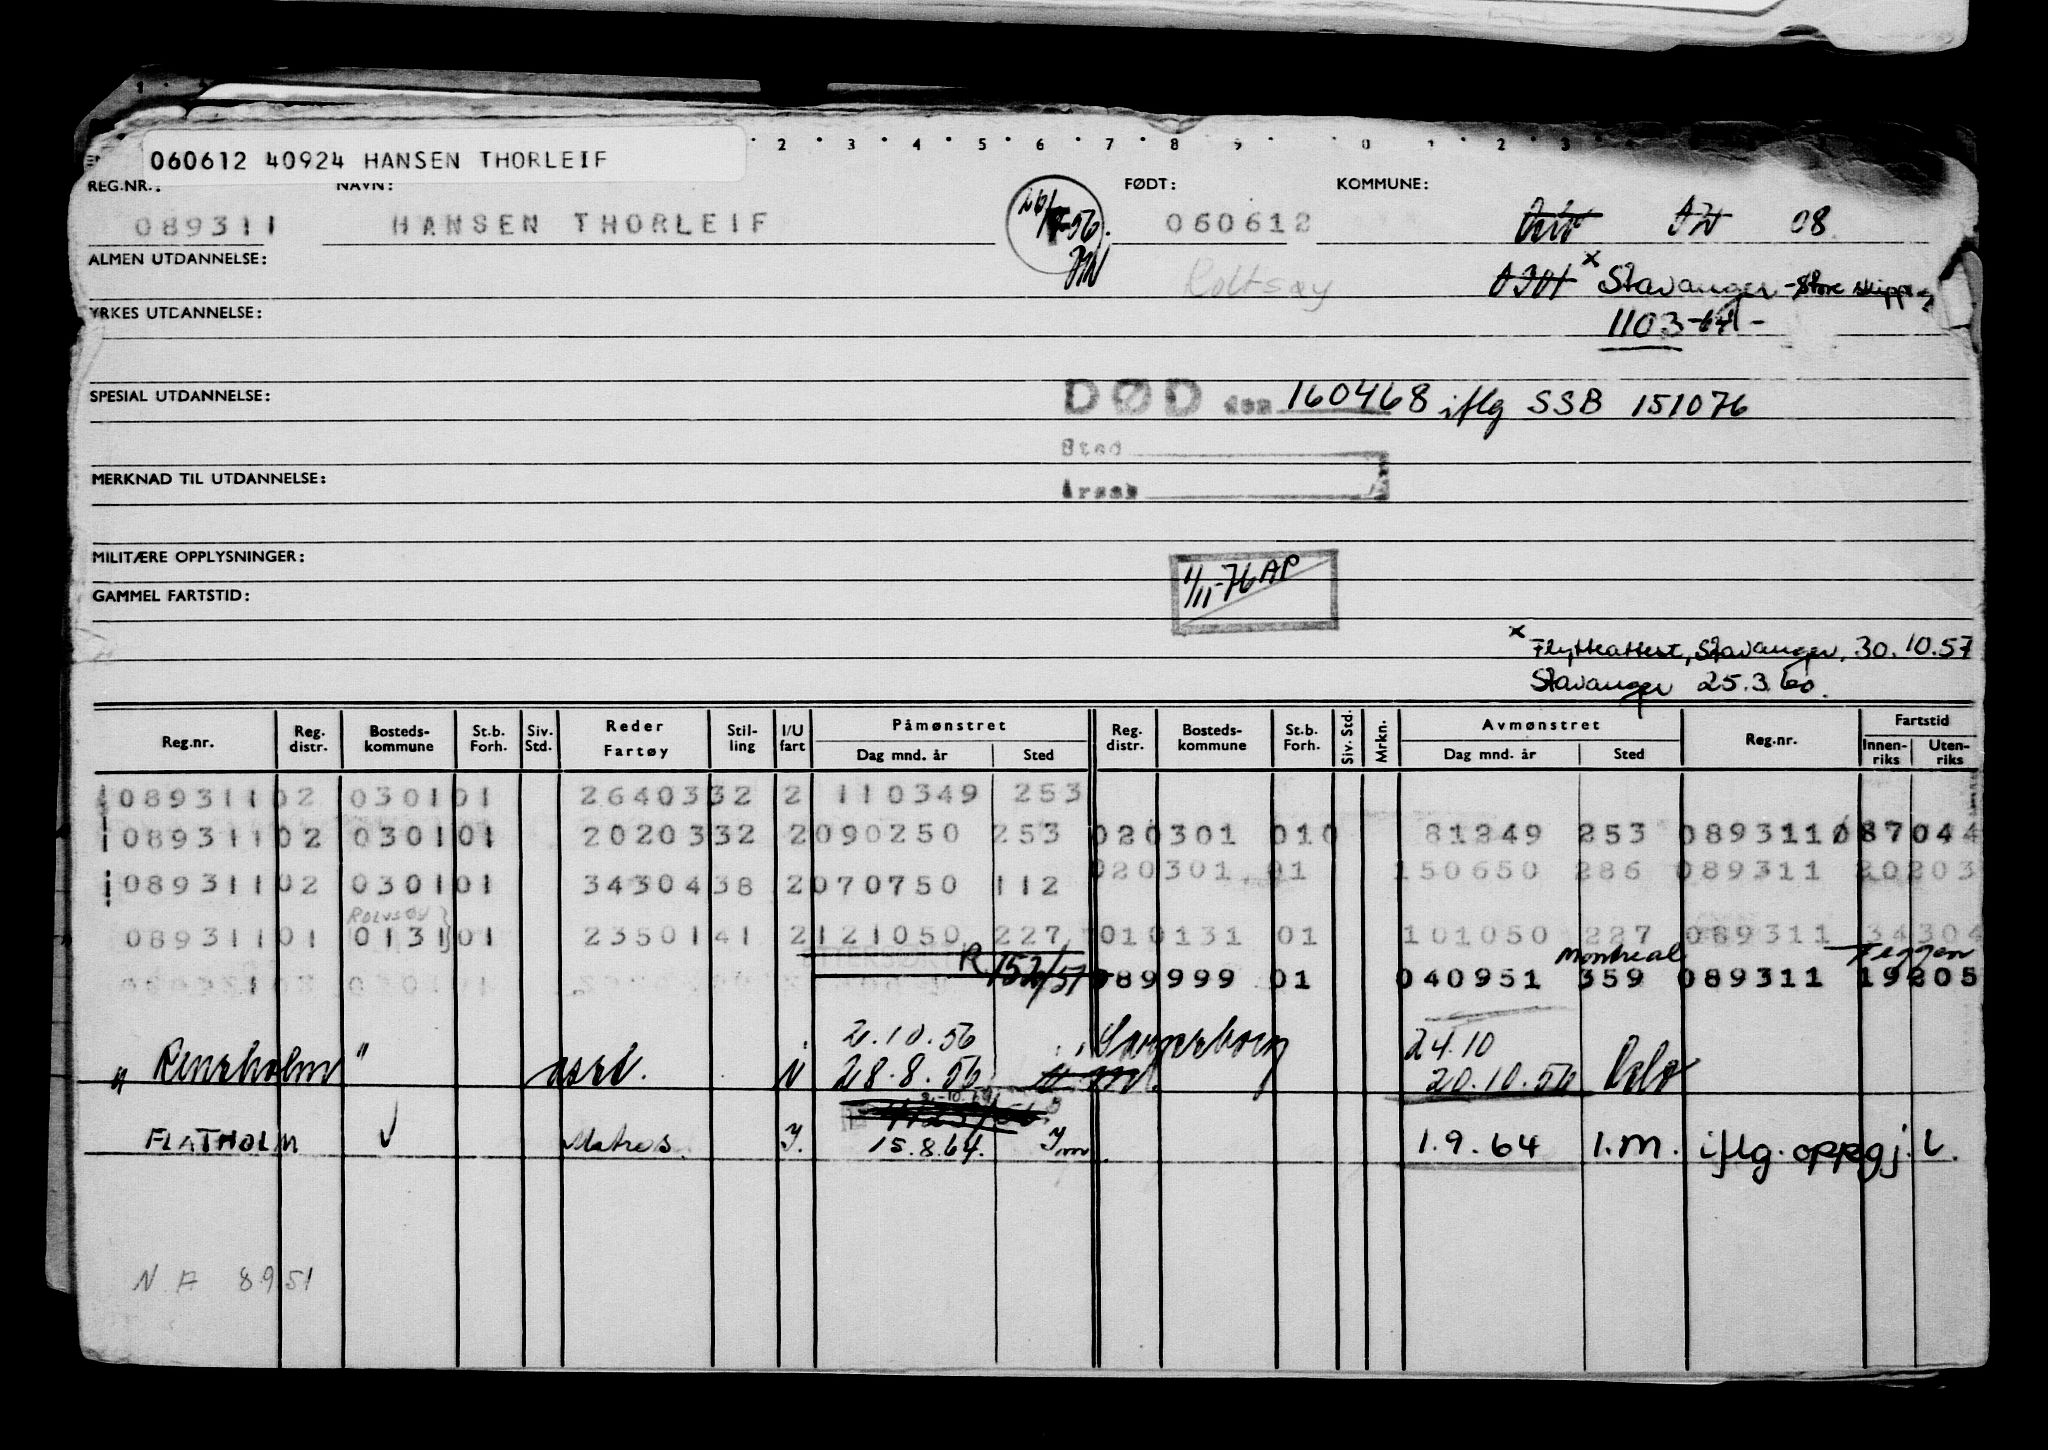 060612 40924 HANSEN THORLEIF
2 3 4 5 6 7 8 9 0 1 2 3
REG.NR.: NAVN: FØDT: KOMMUNE:
089311 HANSEN THORLEIF 060612 08
ALMEN UTDANNELSE: Stavanger
YRKES UTDANNELSE: 1103-64-
SPESIAL UTDANNELSE: DØD den 160468 iflg SSB 151076
Sted
MERKNAD TIL UTDANNELSE: Årsak
MILITÆRE OPPLYSNINGER: 1/11-76 AP
GAMMEL FARTSTID:
x Flytteattest, Stavanger, 30.10.57
Stavanger 25.3.60.
Reg.nr. Reg. distr. Bosteds-kommune St.b. Forh. Siv. Std. Reder Fartøy Stil-ling I/U fart Påmønstret Dag mnd. år Sted Reg. distr. Bosteds-kommune St.b. Forh. Siv. Std. Mrkn. Avmønstret Dag mnd. år Sted Reg.nr. Fartstid Innen-riks Uten-riks
089311 02 0301 01 26403 32 2 110349 253
089311 02 0301 01 20203 32 2 090250 253 02 0301 01 0 81249 253 089311 0 87044
02 0301 01 150650 286 089311 20203
089311 02 0301 01 34304 38 2 070750 112
089311 01 0131 01 23501 41 2 121050 227 01 0131 01 101050 227 089311 34304
R 152/51 Montreal
089999 01 040951 359 089311 19205
2.10.56 24.10
28.8.56 20.10.56 Oslo
FLATHOLM Matros. 15.8.64. 1.9.64 I.M. iflg. oppgj.
N A 8951